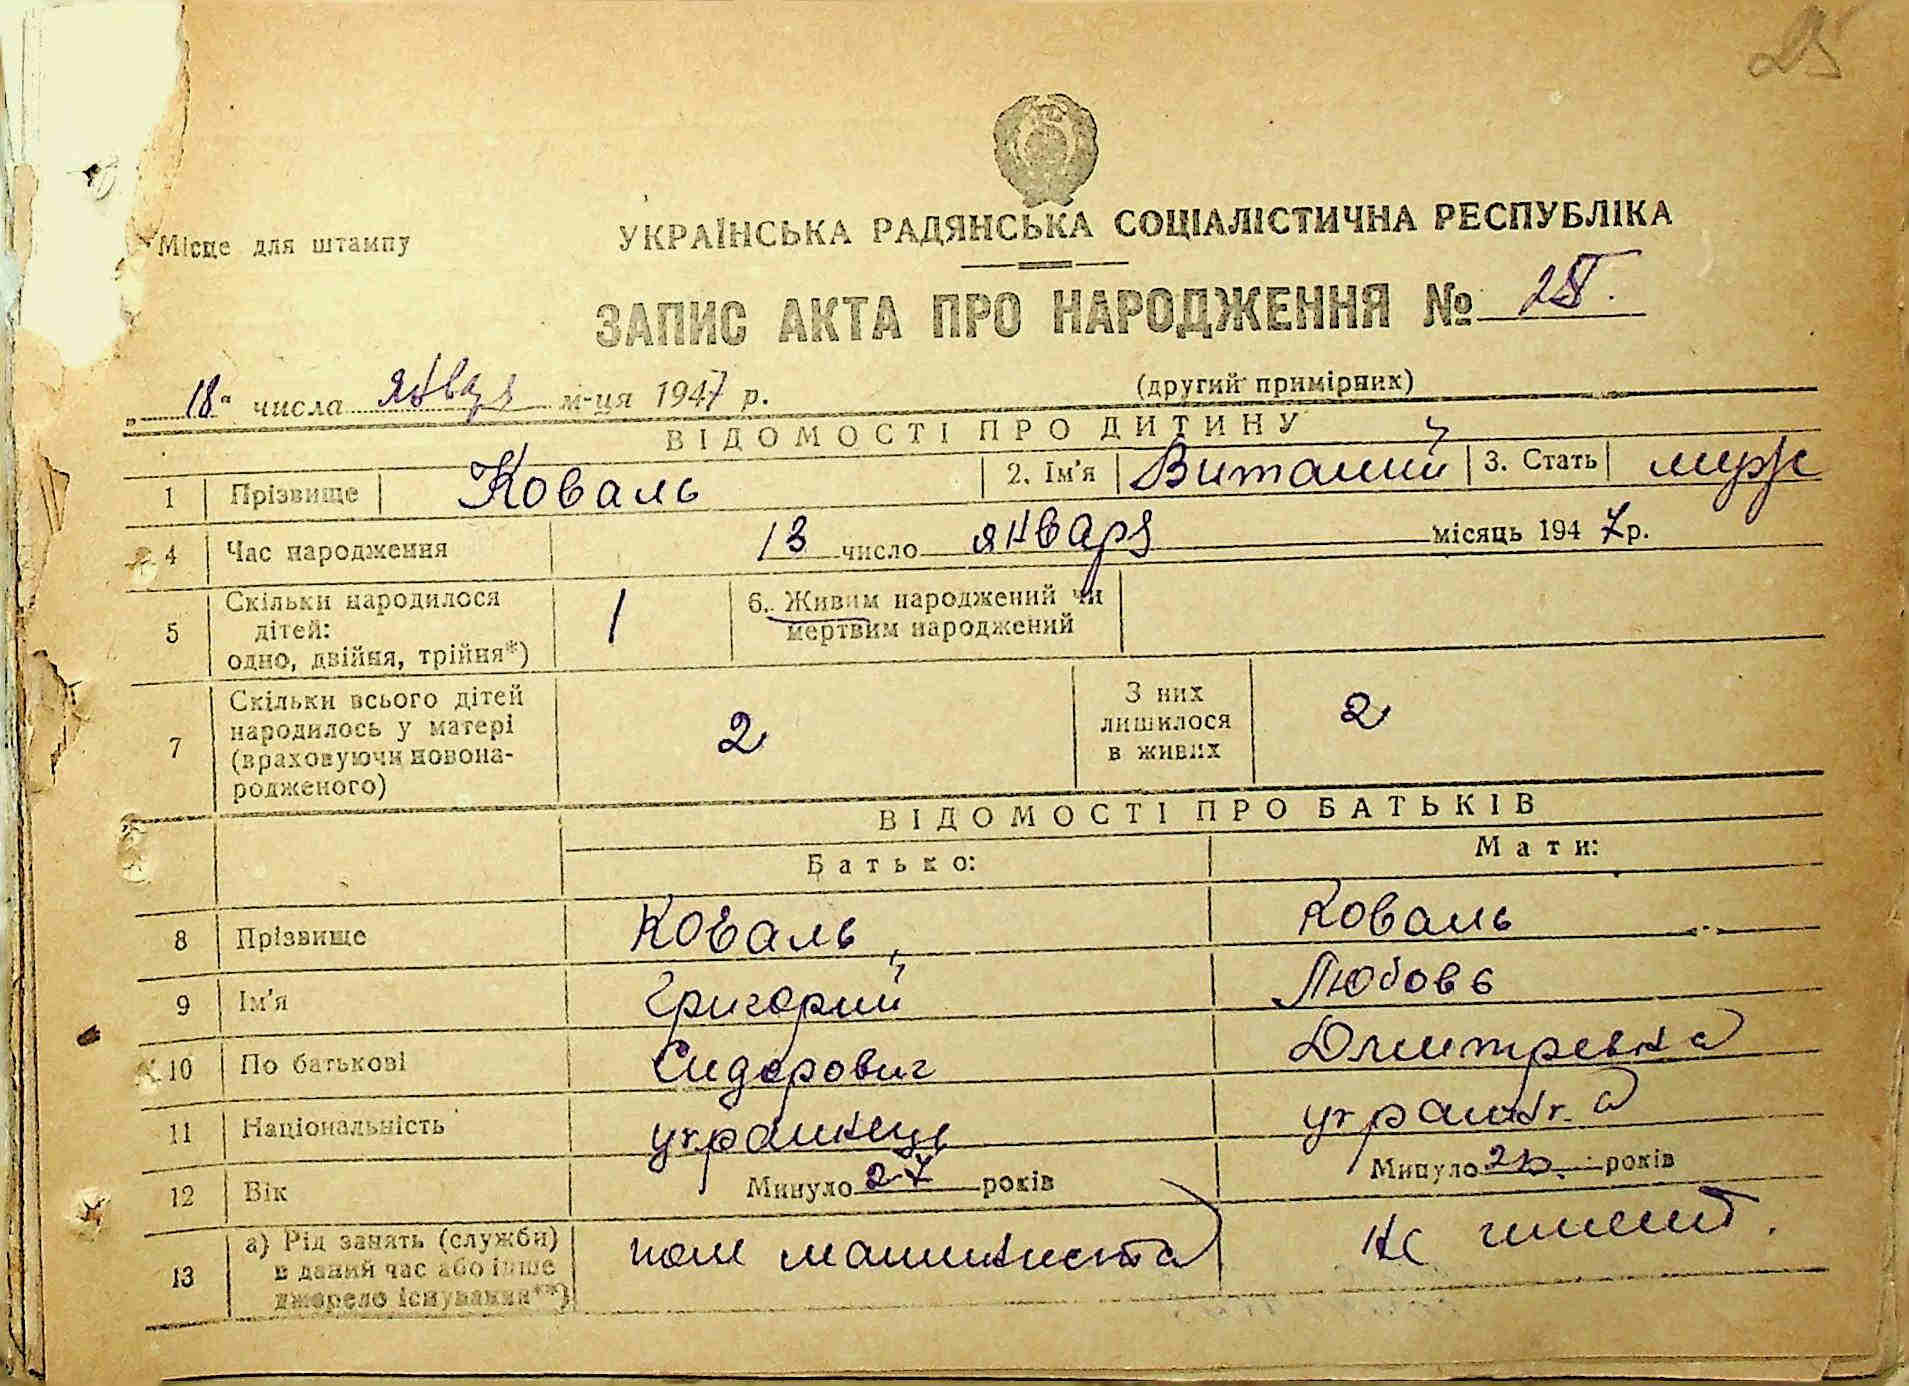 25
Місце для штампу
УКРАЇНСЬКА РАДЯНСЬКА СОЦІАЛІСТИЧНА РЕСПУБЛІКА
ЗАПИС АКТА ПРО НАРОДЖЕННЯ № 25.
(другий примірник)
„18“ числа января м-ця 1947 р.
ВІДОМОСТІ ПРО ДИТИНУ
1 Прізвище Коваль 2. Ім'я Виталий 3. Стать муж
4 Час народження 13 число января місяць 1947 р.
5 Скільки народилося дітей: одно, двійня, трійня*) 1 6. Живим народжений чи мертвим народжений
7 Скільки всього дітей народилось у матері (враховуючи новонародженого) 2 З них лишилося в живих 2
ВІДОМОСТІ ПРО БАТЬКІВ
Батько: Мати:
8 Прізвище Коваль Коваль
9 Ім'я Григорий Любовь
10 По батькові Сидорович Дмитревна
11 Національність украинець украинка
12 Вік Минуло 27 років Минуло років
13 а) Рід занять (служби) в даний час або інше джерело існування**) пом машиниста не имеет.